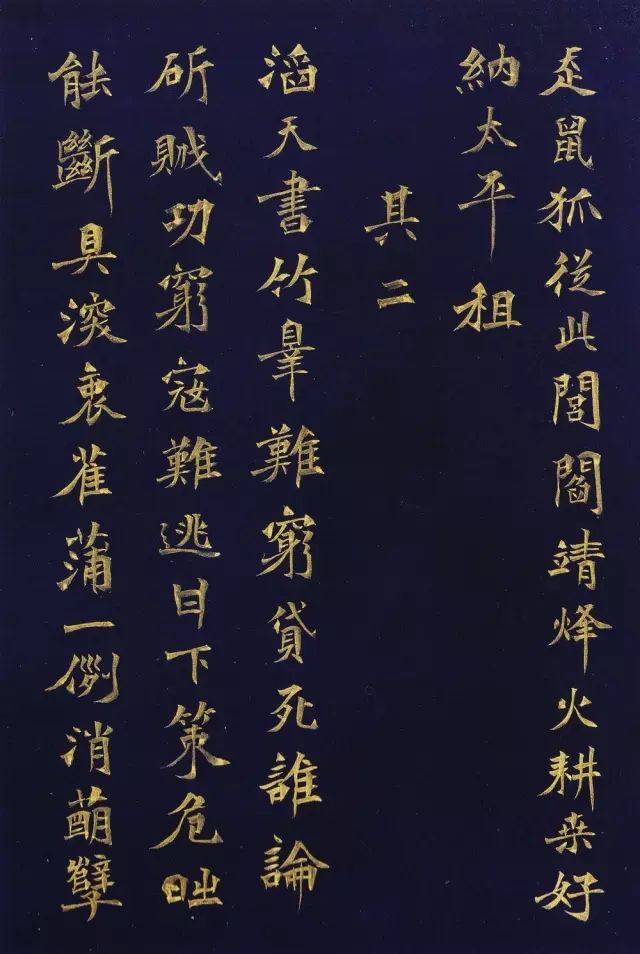 走鼠狐從此閭閻靖烽火耕桒好
納太平租
其二
滔天書竹辠難窮貸死誰論
斫賊功窮寇難逃日下策危
能斷具深衷萑蒲一例消萌孽